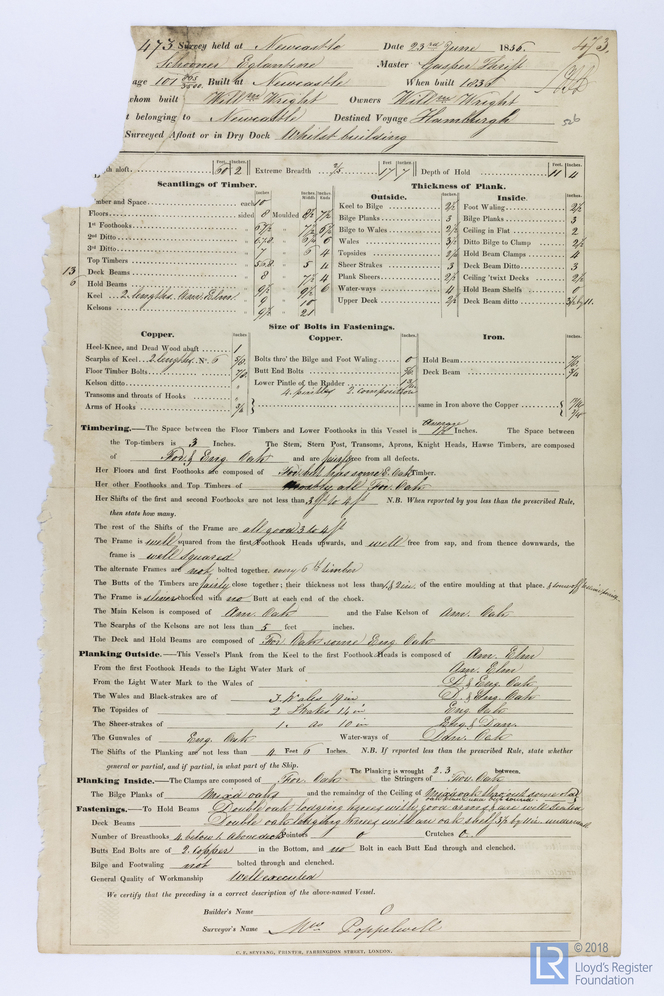 473. Survey held at Newcastle Date 23rd June 1836. 473.
Schooner Eglantine Master Gasper Thrift
age 101 Built at Newcastle When built 1836
whom built Willm Wright Owners Willm Wright
t belonging to Newcastle Destined Voyage Hamburgh 526
Surveyed Afloat or in Dry Dock Whilst building
th aloft Feet. Inches. 50 2 Extreme Breadth Feet. Inches. 17 7 Depth of Hold Feet. Inches. 11 4
Scantlings of Timber.
mber and Space each 10
Floors sided 8 Moulded 8½ 7½
1st Foothooks
2nd Ditto
3rd Ditto 7 " 6 4
Top Timbers
Deck Beams 8 " 7½ 4
Hold Beams
Keel 2 lengths Am. Elm 9 " 10
Kelsons 9½ " 21
13
6
Thickness of Plank.
Outside.
Inches
Keel to Bilge 2½
Bilge Planks 3
Bilge to Wales 2½
Wales 3½
Topsides 2½
Sheer Strakes 3
Plank Sheers 2½
Water-ways 4
Upper Deck 2½
Inside.
Inches
Foot Waling 2½
Bilge Planks 3
Ceiling in Flat 2
Ditto Bilge to Clamp 2½
Hold Beam Clamps 4
Deck Beam Ditto 3
Ceiling 'twixt Decks 2½
Hold Beam Shelfs 0
Deck Beam ditto 3½ by 11.
Size of Bolts in Fastenings.
Copper.
Heel-Knee, and Dead Wood abaft 1
Scarphs of Keel 2 lengths. No 6
Floor Timber Bolts 7/8
Kelson ditto "
Transoms and throats of Hooks "
Arms of Hooks ¾
Copper.
Bolts thro' the Bilge and Foot Waling 0
Butt End Bolts
Lower Pintle of the Rudder
4. pintles 2. composition
Iron.
Hold Beam
Deck Beam ¾
same in Iron above the Copper
Timbering.—The Space between the Floor Timbers and Lower Foothooks in this Vessel is average 1½ Inches. The Space between
the Top-timbers is 3 Inches. The Stem, Stern Post, Transoms, Aprons, Knight Heads, Hawse Timbers, are composed
of For. & Eng. Oak and are free from all defects.
Her Floors and first Foothooks are composed of For. but has some E. Oak Timber.
Her other Foothooks and Top Timbers of Mostly all For. Oak
Her Shifts of the first and second Foothooks are not less than 3 ft to 4 ft N.B. When reported by you less than the prescribed Rule,
then state how many.
The rest of the Shifts of the Frame are all good 3 to 4 ft
The Frame is well squared from the first Foothook Heads upwards, and well free from sap, and from thence downwards, the
frame is well squared
The alternate Frames are not bolted together. every 6th timber
The Butts of the Timbers are fairly close together; their thickness not less than 1/8 2 in. of the entire moulding at that place.
The Frame is chocked with no Butt at each end of the chock.
The Main Kelson is composed of Am. Oak and the False Kelson of Am. Oak
The Scarphs of the Kelsons are not less than 5 feet inches.
The Deck and Hold Beams are composed of For Oak some Eng Oak
Planking Outside.—This Vessel's Plank from the Keel to the first Foothook Heads is composed of Am. Elm
From the first Foothook Heads to the Light Water Mark of Am. Elm
From the Light Water Mark to the Wales of D. & Eng. Oak
The Wales and Black-strakes are of 3. Wales 9 in D. & Eng. Oak
The Topsides of 2 Strakes 14 in Eng. Oak
The Sheer-strakes of 1. do 10 in Eng & Dan.
The Gunwales of Eng. Oak Water-ways of Dan. Oak
The Shifts of the Planking are not less than 4 Feet 6 Inches. N.B. If reported less than the prescribed Rule, state whether
general or partial, and if partial, in what part of the Ship. The Planking is wrought 2.3 between.
Planking Inside.—The Clamps are composed of For. Oak the Stringers of For. Oak
The Bilge Planks of Mixed oaks and the remainder of the Ceiling of
Fastenings.—To Hold Beams Double oak lodging knees with good arms & are well
Deck Beams Double oak lodging knees with an oak shelf 3½ by 11 in. underneath
Number of Breasthooks 4. below 1. above deck Pointers 0 Crutches 0.
Butts End Bolts are of 2. Copper in the Bottom, and no Bolt in each Butt End through and clenched.
Bilge and Footwaling not bolted through and clenched.
General Quality of Workmanship Well executed
We certify that the preceding is a correct description of the above-named Vessel.
Builder's Name 0
Surveyor's Name Mw Poppelwell
C. F. SEYFANG, PRINTER, FARRINGDON STREET, LONDON.
© 2018
LR Lloyd's Register
Foundation